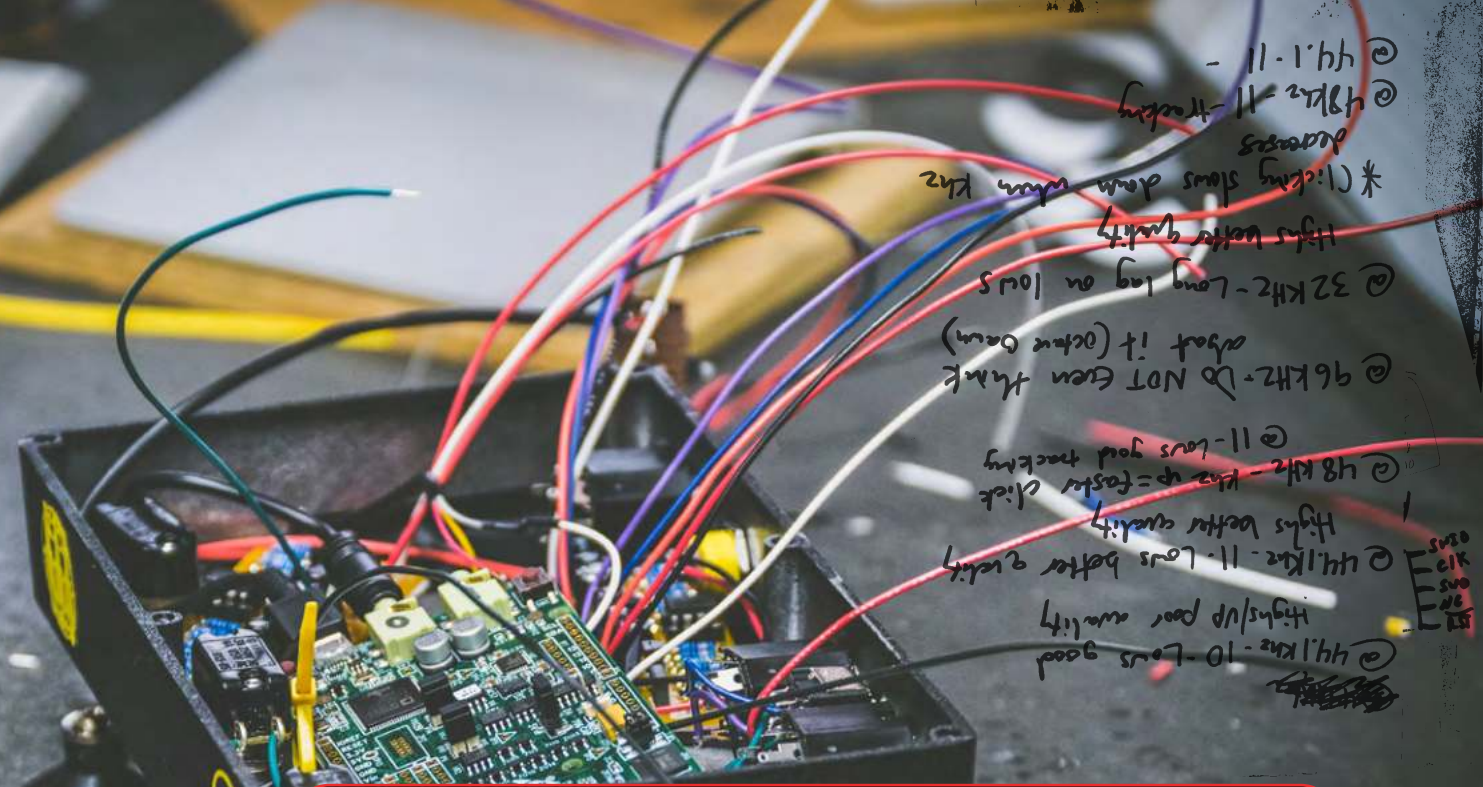 @ 44.1KHz - 10 - Lows good
Highs/Up poor quality
@ 44.1KHz - 11 - Lows better quality
Highs better quality
@ 48KHz - Khz up = faster click
@ 11 - Lows good tracking
@ 96KHz - DO NOT Even think
about it (octave Down)
@ 32KHz - Long lag on lows
Highs better quality
* Clicking slows down when Khz
decreases
@ 48Khz - 11 - tracking
@ 44.1 - 11 -